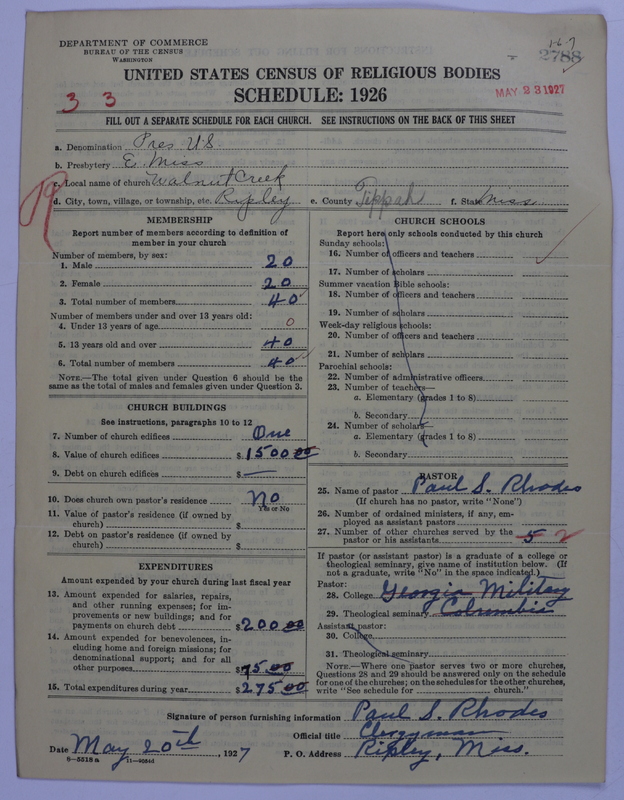 DEPARTMENT OF COMMERCE
BUREAU OF THE CENSUS
WASHINGTON
1-6-7
2788
UNITED STATES CENSUS OF RELIGIOUS BODIES
SCHEDULE: 1926
3 3
MAY 23 1927
FILL OUT A SEPARATE SCHEDULE FOR EACH CHURCH. SEE INSTRUCTIONS ON THE BACK OF THIS SHEET
a. Denomination Pres. U.S.
b. Presbytery E. Miss
c. Local name of church Walnut Creek
d. City, town, village, or township, etc. Ripley e. County Tippah f. State Miss.
19
MEMBERSHIP
Report number of members according to definition of
member in your church
Number of members, by sex:
1. Male 20
2. Female 20
3. Total number of members 40
Number of members under and over 13 years old:
4. Under 13 years of age 0
5. 13 years old and over 40
6. Total number of members 40
NOTE.—The total given under Question 6 should be
the same as the total of males and females given under Question 3.
CHURCH BUILDINGS
See instructions, paragraphs 10 to 12
7. Number of church edifices One
8. Value of church edifices $1500 00
9. Debt on church edifices $—
10. Does church own pastor's residence No
Yes or No
11. Value of pastor's residence (if owned by
church) $
12. Debt on pastor's residence (if owned by
church) $
EXPENDITURES
Amount expended by your church during last fiscal year
13. Amount expended for salaries, repairs,
and other running expenses; for im-
provements or new buildings; and for
payments on church debt $200 00
14. Amount expended for benevolences, in-
cluding home and foreign missions; for
denominational support; and for all
other purposes $75 00
15. Total expenditures during year $275 00
CHURCH SCHOOLS
Report here only schools conducted by this church
Sunday schools:
16. Number of officers and teachers
17. Number of scholars
Summer vacation Bible schools:
18. Number of officers and teachers
19. Number of scholars
Week-day religious schools:
20. Number of officers and teachers
21. Number of scholars
Parochial schools:
22. Number of administrative officers
23. Number of teachers—
a. Elementary (grades 1 to 8)
b. Secondary
24. Number of scholars—
a. Elementary (grades 1 to 8)
b. Secondary
PASTOR
25. Name of pastor Paul S. Rhodes
(If church has no pastor, write "None")
26. Number of ordained ministers, if any, em-
ployed as assistant pastors
27. Number of other churches served by the
pastor or his assistants 5 2
If pastor (or assistant pastor) is a graduate of a college or
theological seminary, give name of institution below. (If
not a graduate, write "No" in the space indicated.)
Pastor:
28. College Georgia Military
29. Theological seminary Columbia
Assistant pastor:
30. College
31. Theological seminary
NOTE.—Where one pastor serves two or more churches,
Questions 28 and 29 should be answered only on the schedule
for one of the churches; on the schedules for the other churches,
write "See schedule for church."
Signature of person furnishing information Paul S. Rhodes
Official title Clergyman
Date May 20th, 1927 P. O. Address Ripley, Miss.
8—5518 a